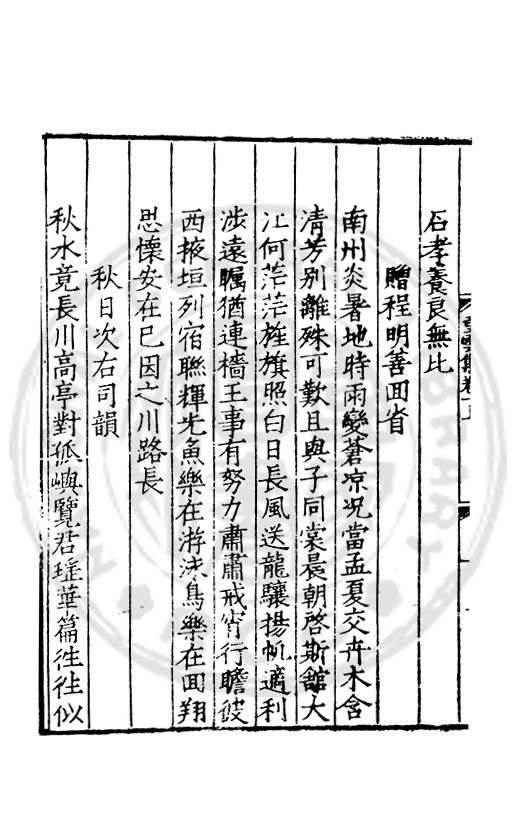 石孝養良無比
贈程明善回省
南州炎暑地時雨變蒼凉况當孟夏交卉木含
清芳別離殊可歎且與子同裳晨朝啓斯舘大
江何茫茫旌旗照白日長風送龍驤揚帆適利
涉遠矚猶連檣王事有努力肅肅戒宵行瞻彼
西掖垣列宿聯輝光魚樂在游泳鳥樂在回翔
思懷安在巳因之川路長
秋日次右司韻
秋水竟長川高亭對孤嶼覽君瑶華篇往往似